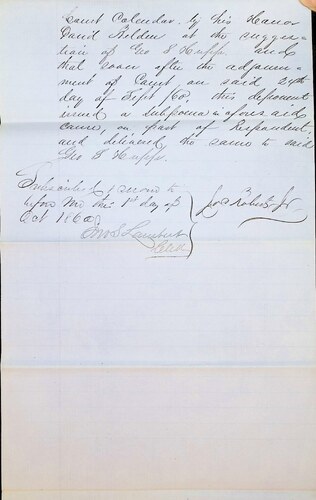 Court Calendar by his Honor
David Belden at the sugges-
tion of Geo F Hupp. and
that soon after the adjourn-
ment of Court, on said 24th
day of Sept 60. this deponent
issued a subpoena in aforesaid
cause, on part of Respondent,
and delivered the same to said
Geo F Hupp.
Subscribed & sworn to
before me this 1st day of
Oct 1860
Jno S Lambert
Clerk
Roberts Jr